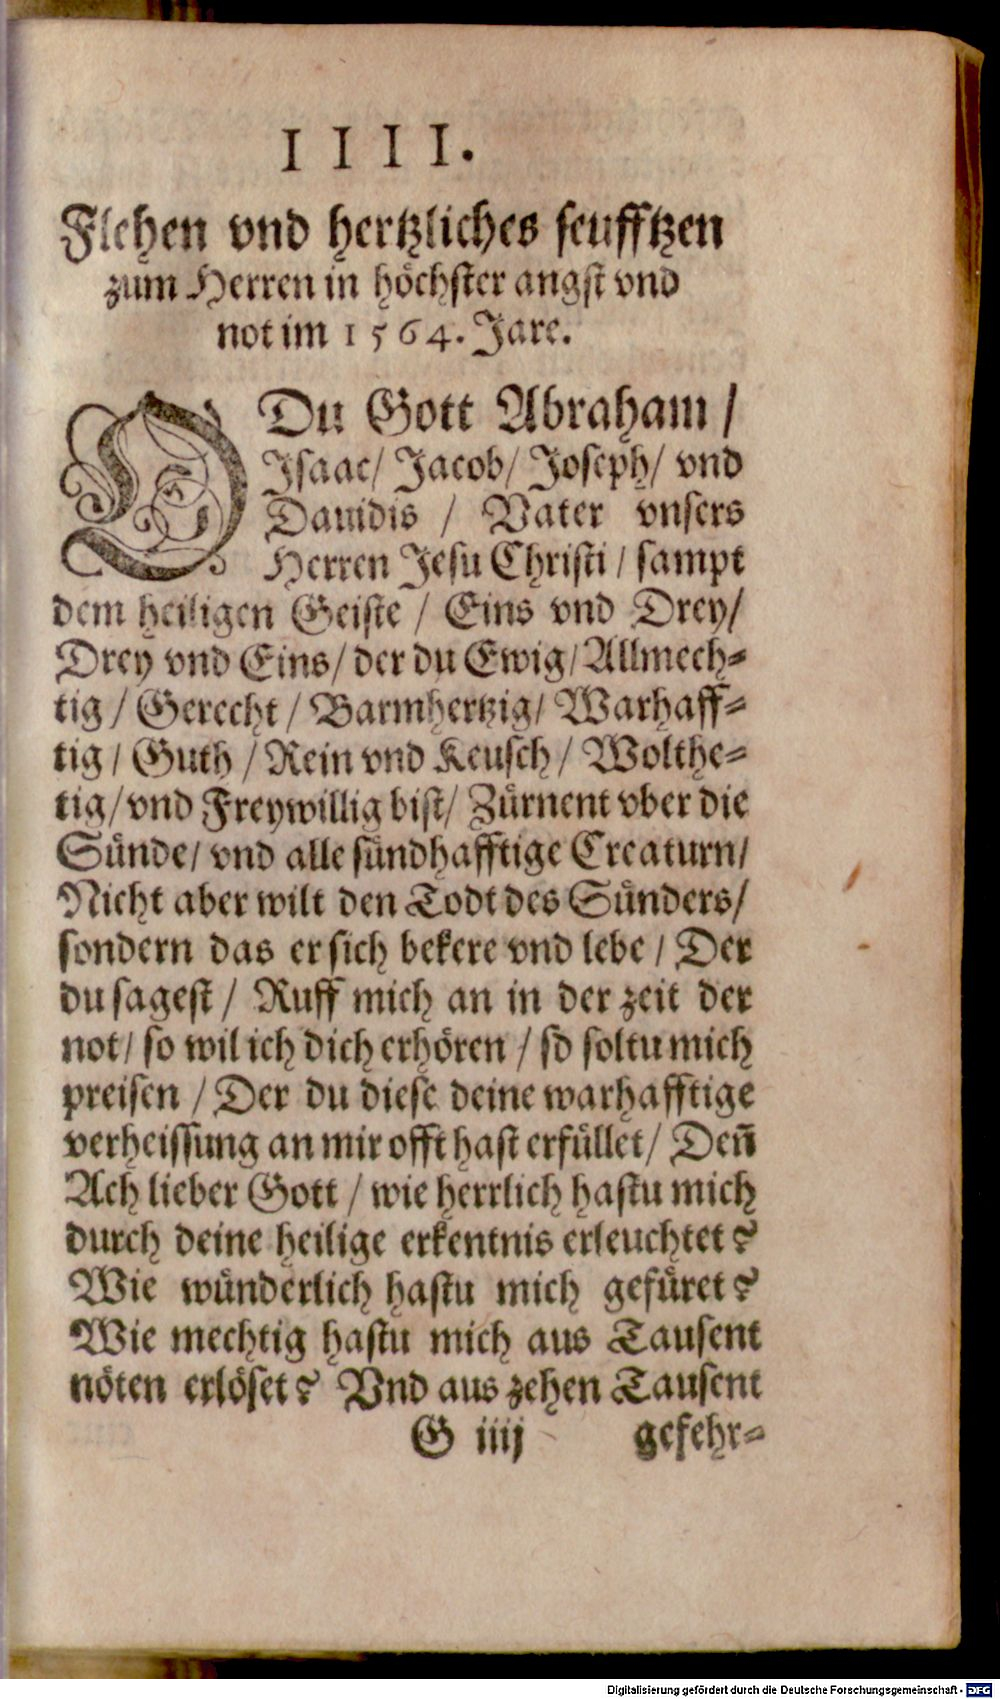 IIII.
Flehen vnd hertzliches seufftzen
zum Herren in höchster angst vnd
not im 1564. Jare.
O Du Gott Abraham /
Isaac / Jacob / Joseph / vnd
Dauidis / Vater vnsers
Herren Jesu Christi / sampt
dem heiligen Geiste / Eins vnd Drey /
Drey vnd Eins / der du Ewig / Allmech-
tig / Gerecht / Barmhertzig / Warhaff-
tig / Guth / Rein vnd Keusch / Wolthe-
tig / vnd Freywillig bist / Zürnent vber die
Sünde / vnd alle sündhafftige Creaturn /
Nicht aber wilt den Todt des Sünders /
sondern das er sich bekere vnd lebe / Der
du sagest / Ruff mich an in der zeit der
not / so wil ich dich erhören / so soltu mich
preisen / Der du diese deine warhafftige
verheissung an mir offt hast erfüllet / Deñ
Ach lieber Gott / wie herrlich hastu mich
durch deine heilige erkentnis erleuchtet?
Wie wünderlich hastu mich gefüret?
Wie mechtig hastu mich aus Tausent
nöten erlöset? Vnd aus zehen Tausent
G iiij gefehr-
Digitalisierung gefördert durch die Deutsche Forschungsgemeinschaft - DFG